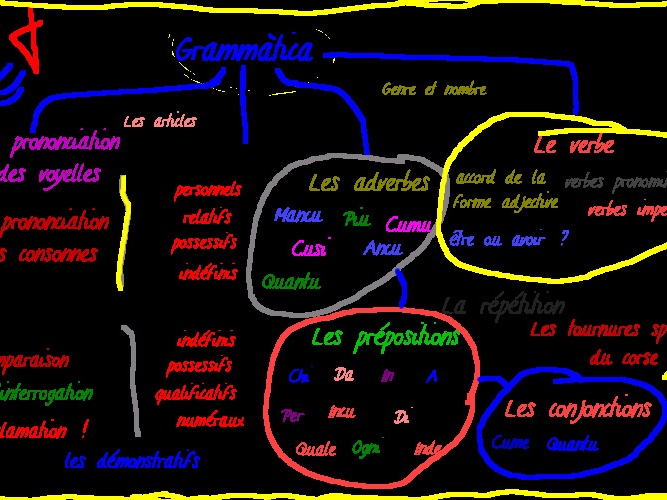 Grammàtica
Genre et nombre
Les articles
prononciation
des voyelles
prononciation
consonnes
personnels
relatifs
possessifs
indéfinis
Les adverbes
Mancu Piu Cumu
Cusi Ancu
Quantu
Le verbe
accord de la
forme adjective
être ou avoir ?
La répétition
Les tournures
du corse
interrogation
indéfinis
possessifs
qualificatifs
numéraux
les démonstratifs
Les prépositions
Da In A
Per Incu Di
Quale Ogni Inde
Les conjonctions
Cume Quantu